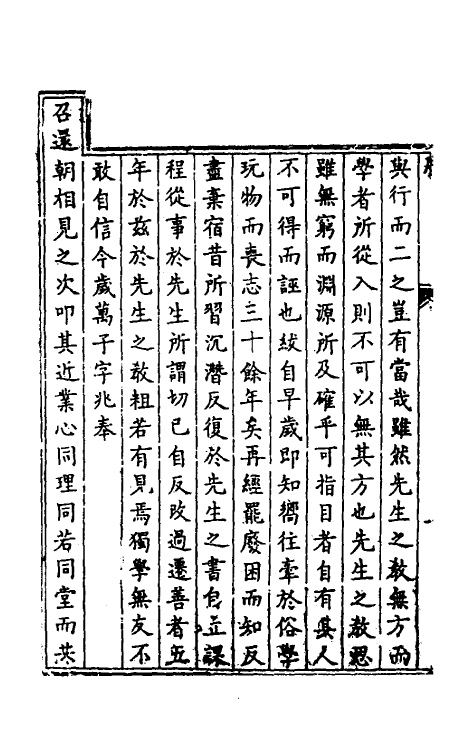 與行而二之豈有當哉雖然先生之教無方而
學者所從入則不可以無其方也先生之教思
雖無窮而淵源所及確乎可指目者自有其人
不可得而誣也紱自早歲即知嚮往牽於俗學
玩物而喪志三十餘年矣再經罷廢困而知反
盡棄宿昔所習沉潛反復於先生之書自立課
程從事於先生所謂切己自反改過遷善者五
年於茲於先生之教粗若有見焉獨學無友不
敢自信今歲萬子字兆奉
召還朝相見之次叩其近業心同理同若同堂而共